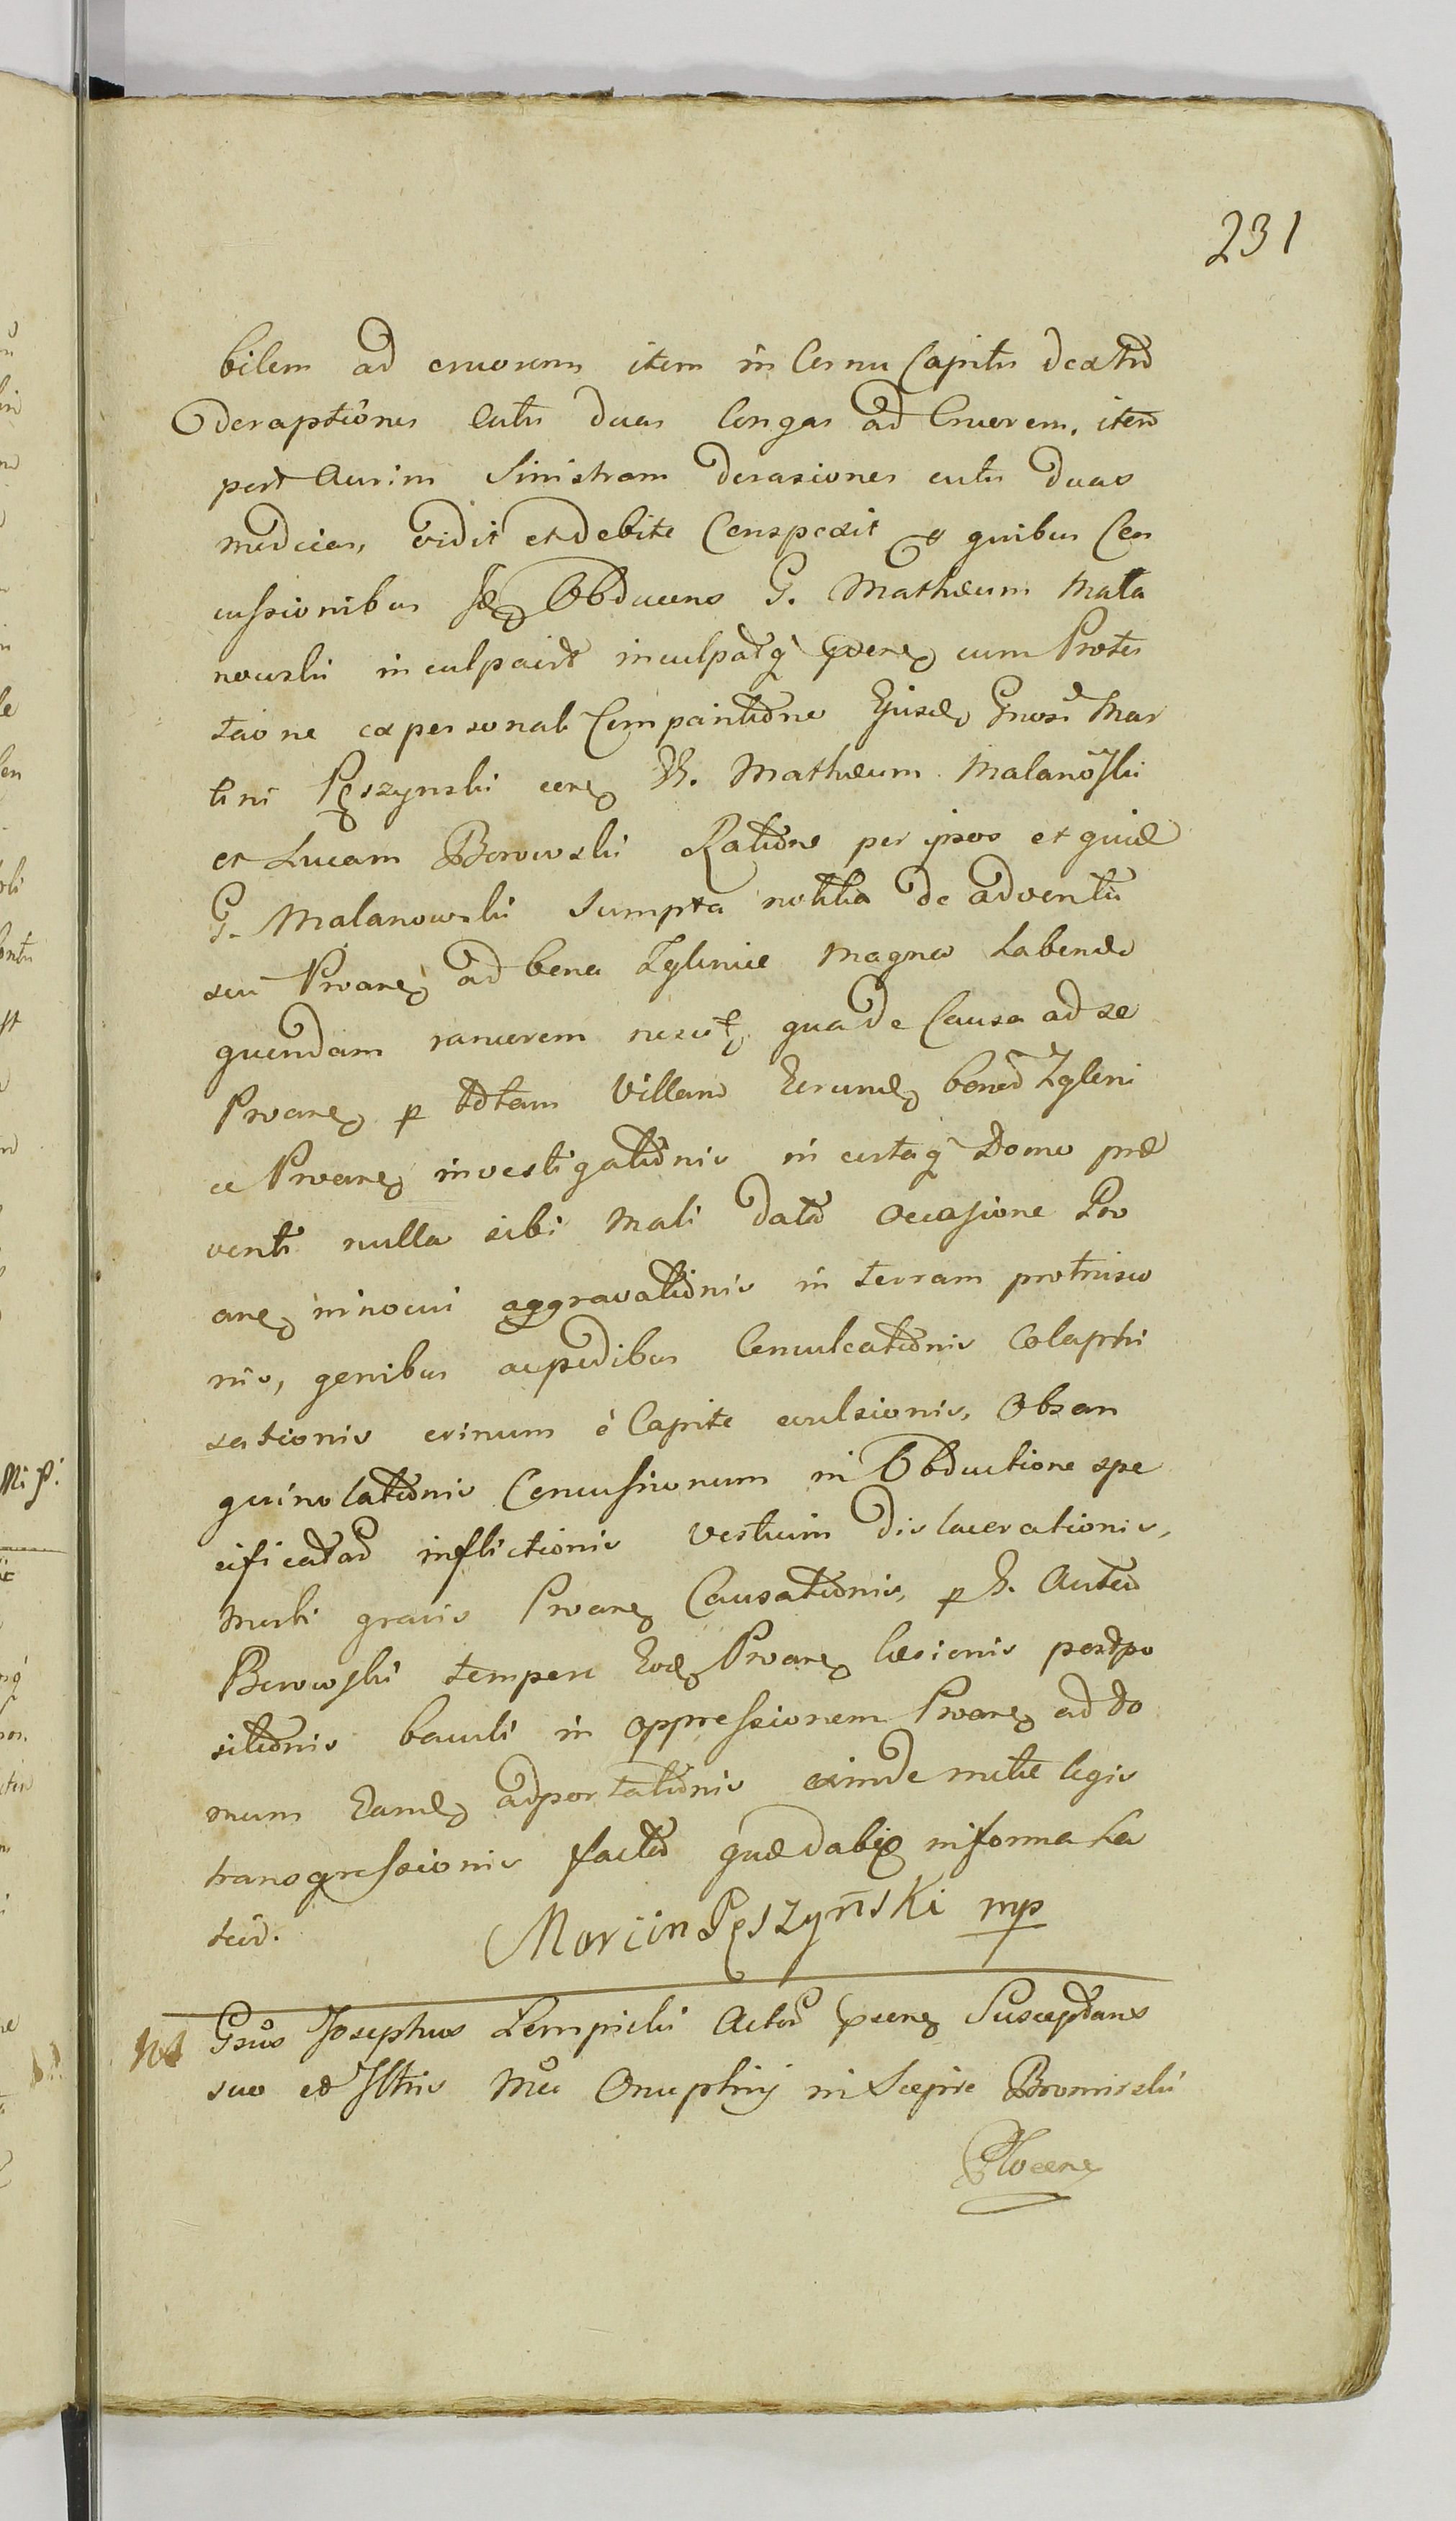 231
bilem ad cruorem item in Cornu Capitis dextro
deraptiones cutis duas longas ad Cruorem, item
post Aurim Sinistram derasiones cutis duas
medicas, vidit et debite Conspexit quibus Con
cussionibus se Obducens G. Mathæum Mala
nowski inculpavit inculpatq cum Protes
taone ex personali Compariitione Ejusd Gnosi Mar
tini Pęszynski G. Mathæum Malanoski
et Lucam Borowski Ratione per ipsos et quid
G. Malanowski Sumpta notitia de adventu
sui Proane ad bona Zglinice Magna habendo
quendam rancorem qua de Causa ad se
Proane p totam Villam Eorund bonor Zglini
ce Proane investigationis in certaq Domo præ
venti nulla sibi Mali data Occasione Pro
ane innocui aggravationis in terram protrusio
nis, genibus acpedibus Conculcationis Colaphi
sationis crinum è Capite evulsionis, Obsan
guinolationis Concussionum in Obductione spe
cificatar inflictionis Vestium dislacerationis,
Multi gravis Proane Causationis, p G. Autem
Borowski tempore Eod Proane læsionis postpo
sitionis baculi in oppressionem Proane ad do
mum Eand adportationis exinde mulctæ legis
transgressionis factar in forma La
tiori.
Marcin Pęszyński mp
Gnus Josephus Lempicki Actor Susceptans
suo et Onuphrij in Scepie Bromirski